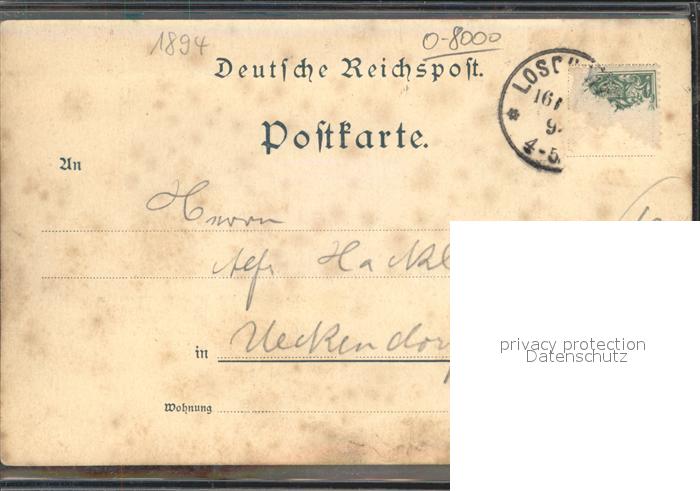 1894
0-8000
Deutsche Reichspost.
Postkarte.
* LOSC
16
9
4-5
An
Herrn
Alf. Hackl
in Ueckendor
Wohnung
privacy protection
Datenschutz